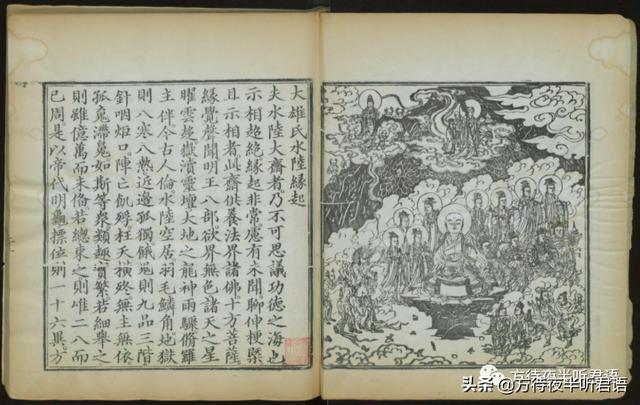 大雄氏水陸緣起
夫水陸大齋者乃不可思議功德之海也
示相超絕緣起非常慮有未聞聊伸梗槩
且示相者此齋供養法界諸佛十方菩薩
緣覺聲聞明王八部欲界無色諸天之星
曜雲趍嶽瀆靈壇大地之龍神雨驟脩羅
主伴今古人倫水陸空居羽毛鱗角地獄
則八寒八熱近邊孤獨餓鬼則九品三階
針咽炬口陣亡飢殍枉夭橫死無主無依
孤鬼滯魄如斯等衆類趣實繁若細舉之
則雖億萬而未俻若總束之則唯二八而
已周是以帝代明觀摽位則一十六異方
方待夜半听君语
头条 @方待夜半听君语